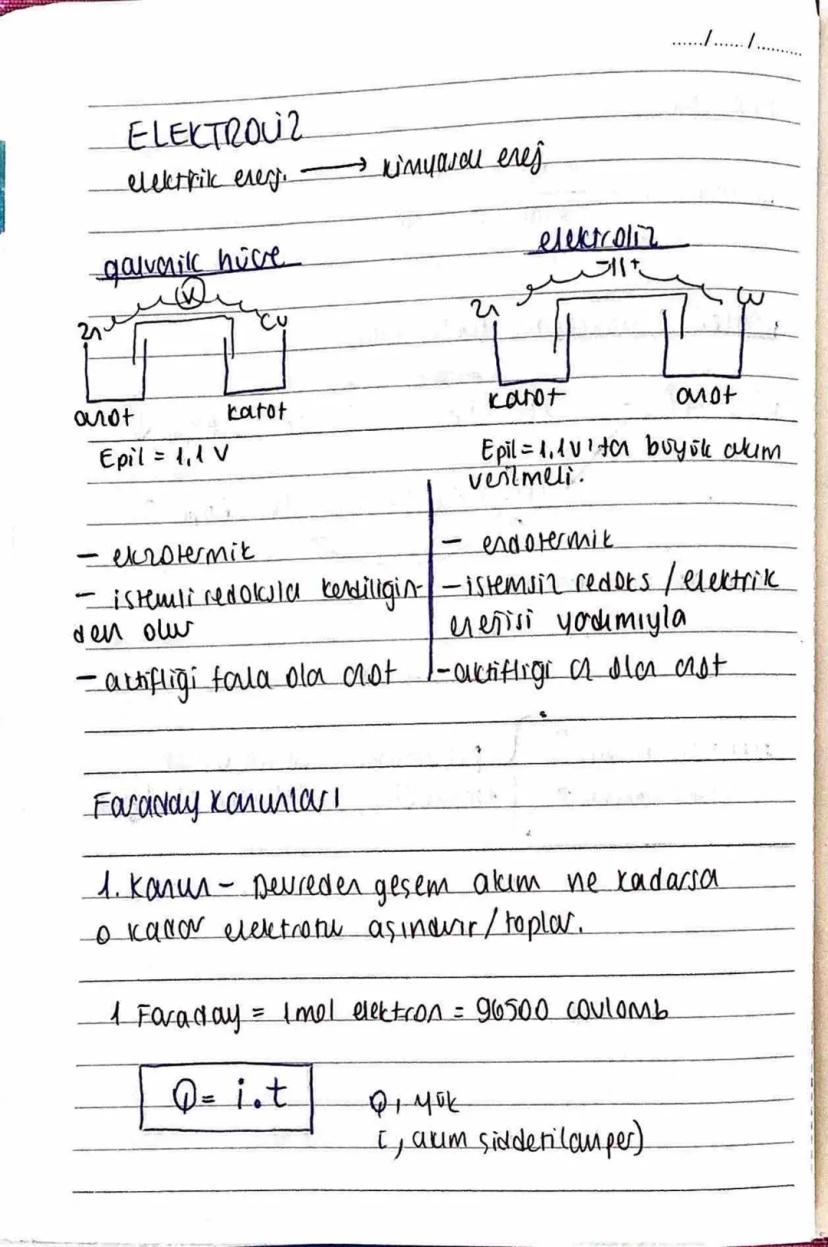 ....../....../..........
ELEKTROLİZ
elektrik enerj. → kimyasal enej
galvanik hücre
elektroliz
V
- || +
Zn
Cu
Zn
Cu
anot
katot
katot
anot
Epil = 1,1 V
Epil = 1,1 V'tan büyük akım
verilmeli.
- ekzotermik
- istemli redoksla kendiliğin
den olur
- aktifliği fazla olan anot
- endotermik
- istemsiz redoks / elektrik
enerjisi yardımıyla
- aktifliği az olan anot
Faraday Kanunları
1. Kanun - Devreden geçem akım ne kadarsa
o kadar elektrotu aşındırır/toplar.
1 Faraday = 1mol elektron = 96500 coulomb
Q = i.t
Q, yük
i, akım şiddeti(amper)